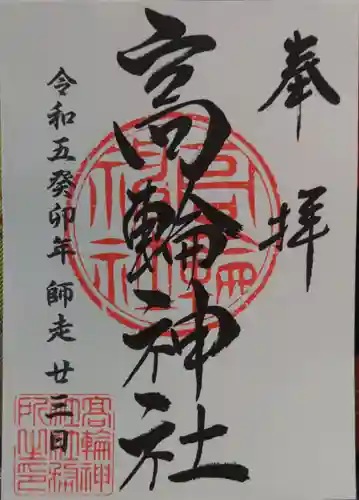 奉拝
高輪神社
令和五癸卯年 師走 廿三日
高輪神社
高輪神社社務所之印